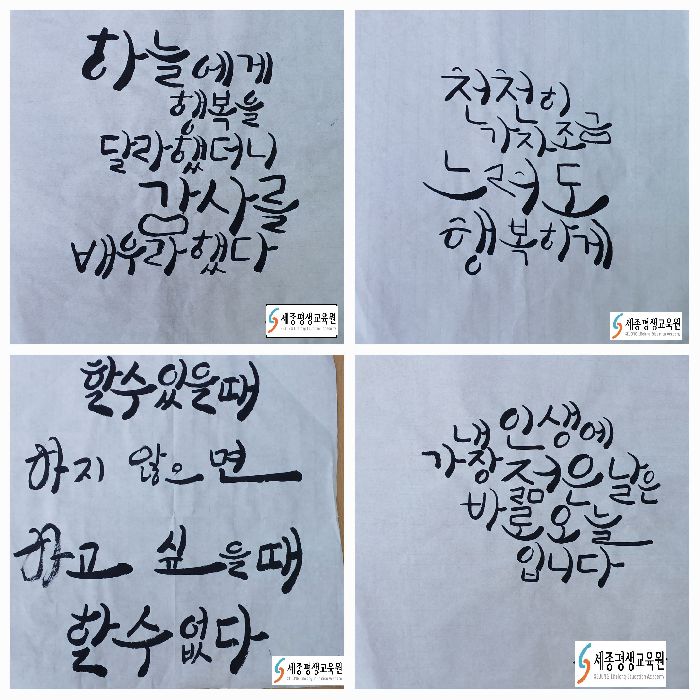 하늘에게
행복을
달라했더니
감사를
배우라했다
세종평생교육원
SEJONG lifelong Education Academy
천천히
가자조금
느려도
행복하게
세종평생교육원
SEJONG lifelong Education Academy
할수있을때
하지 않으면
하고 싶을때
할수없다
세종평생교육원
SEJONG lifelong Education Academy
내 인생에
가장 젊은 날은
바로 오늘
입니다
세종평생교육원
SEJONG lifelong Education Academy